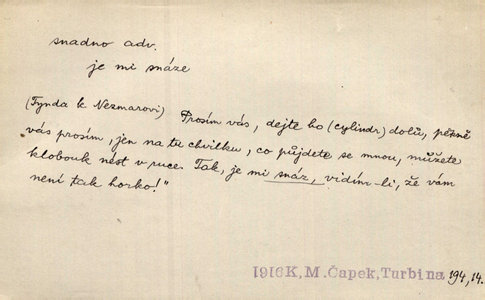 snadno adv.
je mi snáze
(Tynda k Nezmarovi) Prosím vás, dejte ho (cylindr) dolů, pěkně
vás prosím, jen na tu chvilku, co půjdete se mnou, můžete
klobouk nést v ruce. Tak, je mi snáz, vidím-li, že vám
není tak horko!"
1916 K. M. Čapek, Turbina 194, 14.